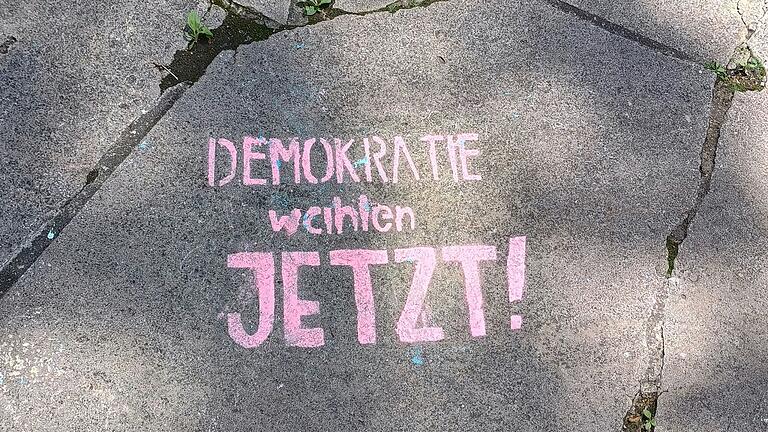 DEMOKRATIE
wählen
JETZT!